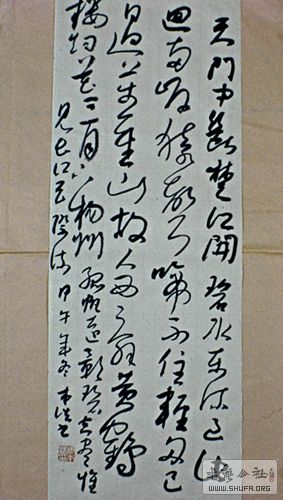 天門中斷楚江開碧水東流至此
回兩岸猿聲啼不住輕舟已
過萬重山故人西辭黃鶴
樓煙花三月下揚州孤帆遠影碧空盡惟
見長江天際流甲午年冬
WWW.SHUFA.ORG